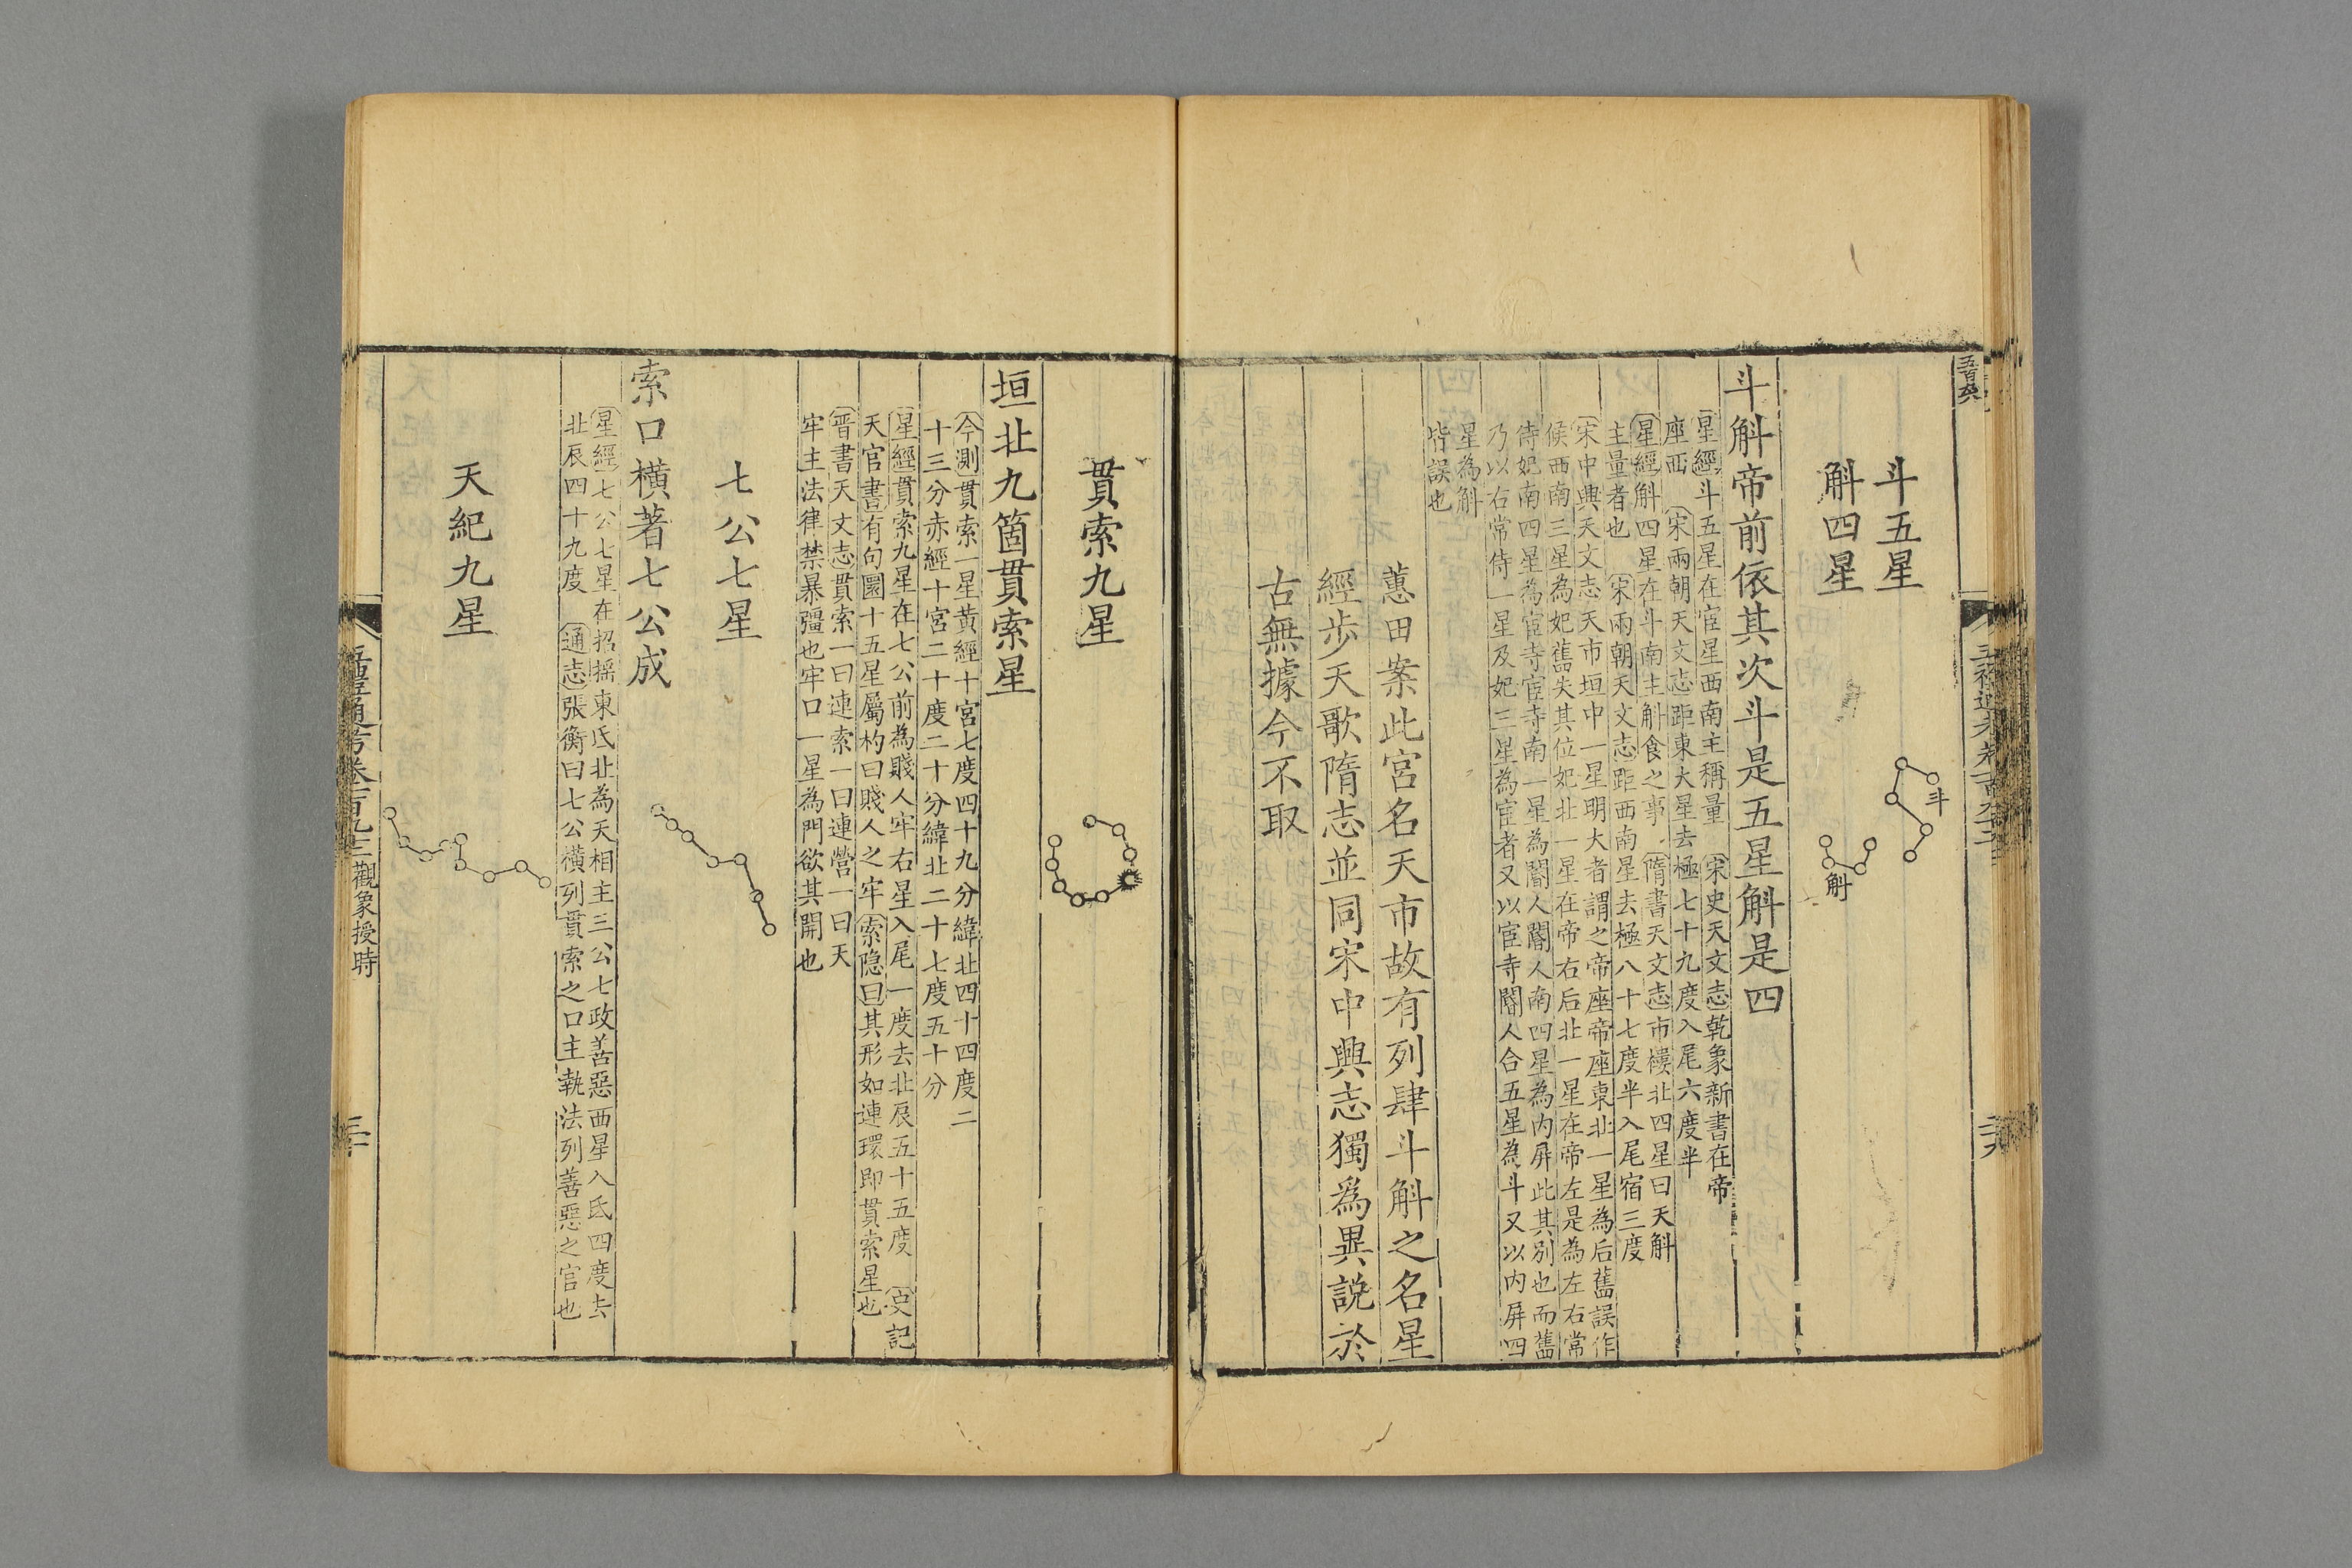 斗五星
斛四星
斗
斛
斗斛帝前依其次斗是五星斛是四
星經斗五星在宦星西南主稱量　宋史天文志乾象新書在帝
座西　宋兩朝天文志距東大星去極七十九度入尾六度半
星經斛四星在斗南主斛食之事　隋書天文志市樓北四星曰天斛
主量者也　宋兩朝天文志距西南星去極八十七度半入尾宿三度
宋中興天文志天市垣中一星明大者謂之帝座帝座東北一星為后舊誤作
候西南三星為妃舊失其位妃北一星在帝右后北一星在帝左是為左右常
侍妃南四星為宦寺宦寺南一星為閽人閽人南四星為內屏此其別也而舊
乃以右常侍一星及妃三星為宦者又以宦寺閽人合五星為斗又以內屏四
星為斛
皆誤也
蕙田案此宮名天市故有列肆斗斛之名星
經步天歌隋志並同宋中興志獨為異說於
古無據今不取
貫索九星
垣北九箇貫索星
今測貫索一星黃經十宮七度四十九分緯北四十四度二
十三分赤經十宮二十度二十分緯北二十七度五十分
星經貫索九星在七公前為賤人牢右星入尾一度去北辰五十五度　史記
天官書有句圜十五星屬杓曰賤人之牢索隱曰其形如連環即貫索星也
晋書天文志貫索一曰連索一曰連營一曰天
牢主法律禁暴彊也牢口一星為門欲其開也
七公七星
索口橫著七公成
星經七公七星在招搖東氐北為天相主三公七政善惡西星入氐四度去
北辰四十九度　通志張衡曰七公橫列貫索之口主執法列善惡之官也
天紀九星
五禮通考卷一百九十三觀象授時
三十